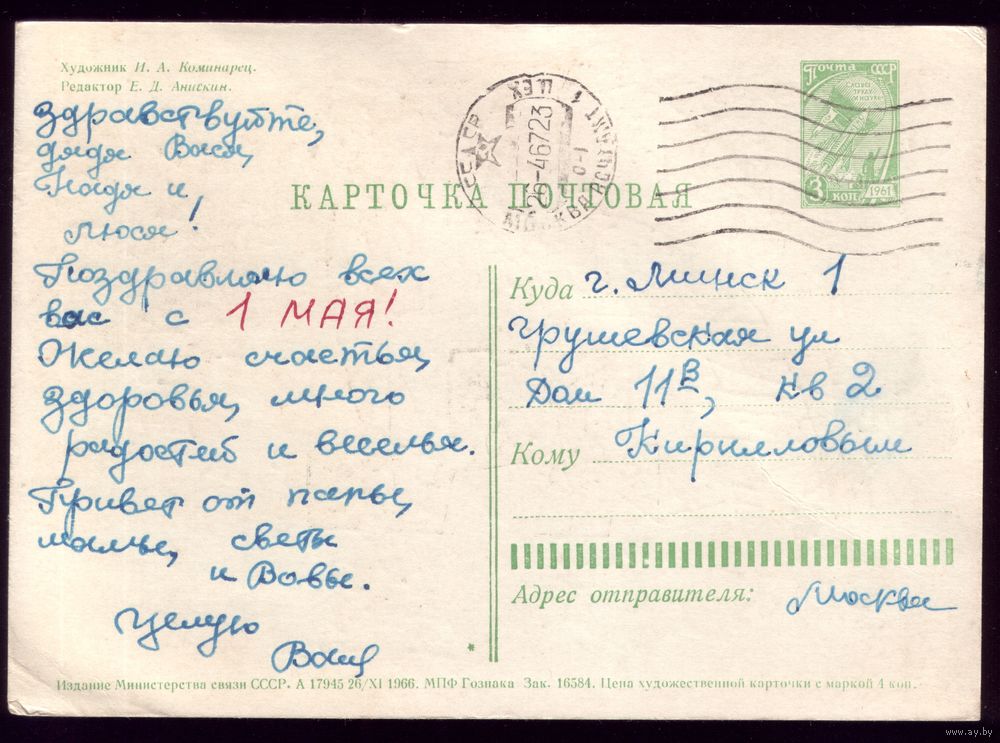 Художник И. А. Коминарец.
Редактор Е. Д. Анискин.
Здравствуйте,
дядя Вася,
Надя и
Люся!
Поздравляю всех
вас с 1 МАЯ!
Желаю счастья,
здоровья, много
радостей и веселья.
Привет от папы,
мамы, Светы
и Вовы.
Целую
КАРТОЧКА ПОЧТОВАЯ
СССР
26-46723
МОСКВА
ПОЧТАМТ 1
ЦЕХ
Почта СССР
СЛОВО
ТРУДУ
И НАУКЕ
3 КОП. 1961
Куда г. Минск 1
Грушевская ул
Дом 11В, кв 2
Кому Кирилловым
Адрес отправителя: Москва
*
Издание Министерства связи СССР. А 17945 26/XI 1966. МПФ Гознака Зак. 16584. Цена художественной карточки с маркой 4 коп.
www.ay.by